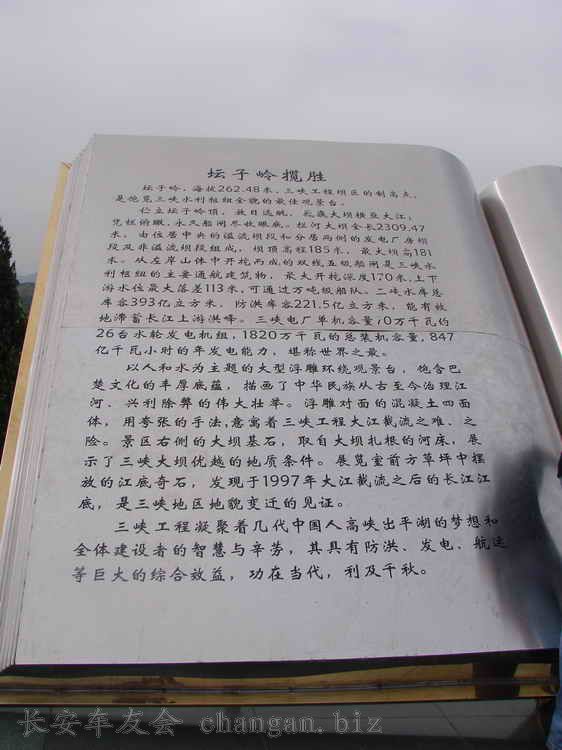 坛子岭揽胜
坛子岭，海拔262.48米，三峡工程坝区的制高点，
是饱览三峡水利枢纽全貌的最佳观景台。
伫立坛子岭顶，放目远眺，巍巍大坝横亘大江；
凭栏俯瞰，永久船闸尽收眼底。拦河大坝全长2309.47
米，由位居中央的溢流坝段和分居两侧的发电厂房坝
段及非溢流坝段组成，坝顶高程185米，最大坝高181
米。从左岸山体中开挖而成的双线五级船闸是三峡水
利枢纽的主要通航建筑物，最大开挖深度170米，上下
游水位最大落差113米，可通过万吨级船队。三峡水库总
库容393亿立方米，防洪库容221.5亿立方米，能有效
地滞蓄长江上游洪峰。三峡电厂单机容量70万千瓦的
26台水轮发电机组，1820万千瓦的总装机容量，847
亿千瓦小时的年发电能力，堪称世界之最。
以人和水为主题的大型浮雕环绕观景台，饱含巴
楚文化的丰厚底蕴，描画了中华民族从古至今治理江
河、兴利除弊的伟大壮举。浮雕对面的混凝土四面
体，用夸张的手法，意寓着三峡工程大江截流之难、之
险。景区右侧的大坝基石，取自大坝扎根的河床，展
示了三峡大坝优越的地质条件。展览室前方草坪中摆
放的江底奇石，发现于1997年大江截流之后的长江江
底，是三峡地区地貌变迁的见证。
三峡工程凝聚着几代中国人高峡出平湖的梦想和
全体建设者的智慧与辛劳，其具有防洪、发电、航运
等巨大的综合效益，功在当代，利及千秋。
长安车友会 changan.biz